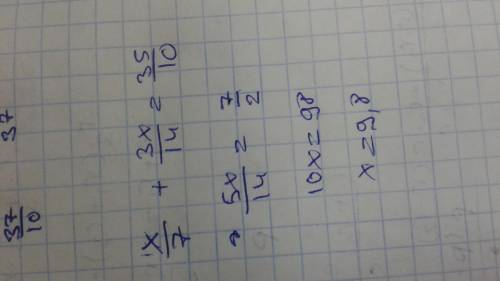 37/10 37
x/7 + 3x/14 = 35/10
5x/14 = 7/2
10x=98
x=9,8